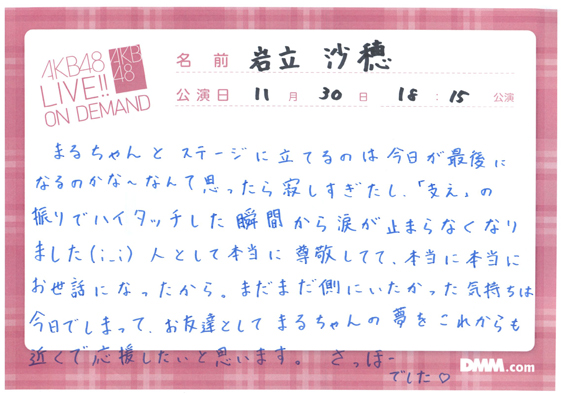 AKB48
LIVE!!
ON DEMAND
AKB
48
名前 岩立 沙穂
公演日 11月30日 18:15公演
まるちゃんと ステージに立てるのは今日が最後に
なるのかな〜なんて思ったら寂しすぎたし、「支え」の
振りでハイタッチした瞬間から涙が止まらなくなり
ました(i_i) 人として本当に尊敬してて、本当に本当に
お世話になったから。まだまだ側にいたかった気持ちは
今日でしまって、お友達としてまるちゃんの夢をこれからも
近くで応援したいと思います。 さっほー
でした♡
DMM.com